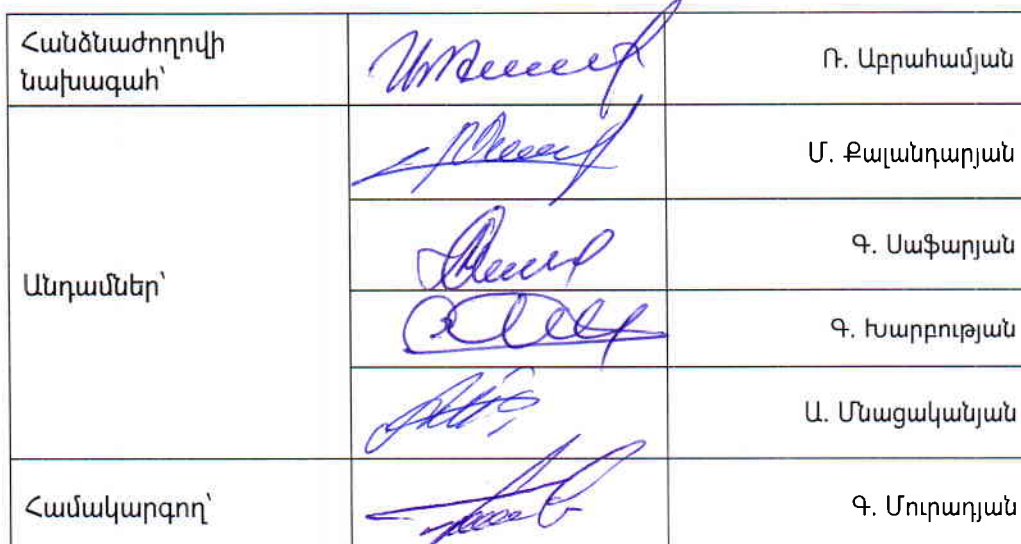 Հանձնաժողովի
նախագահ՝
Ռ. Աբրահամյան
Անդամներ՝
Մ. Քալանդարյան
Գ. Սաֆարյան
Գ. Խարբության
Ա. Մնացականյան
Համակարգող՝
Գ. Մուրադյան